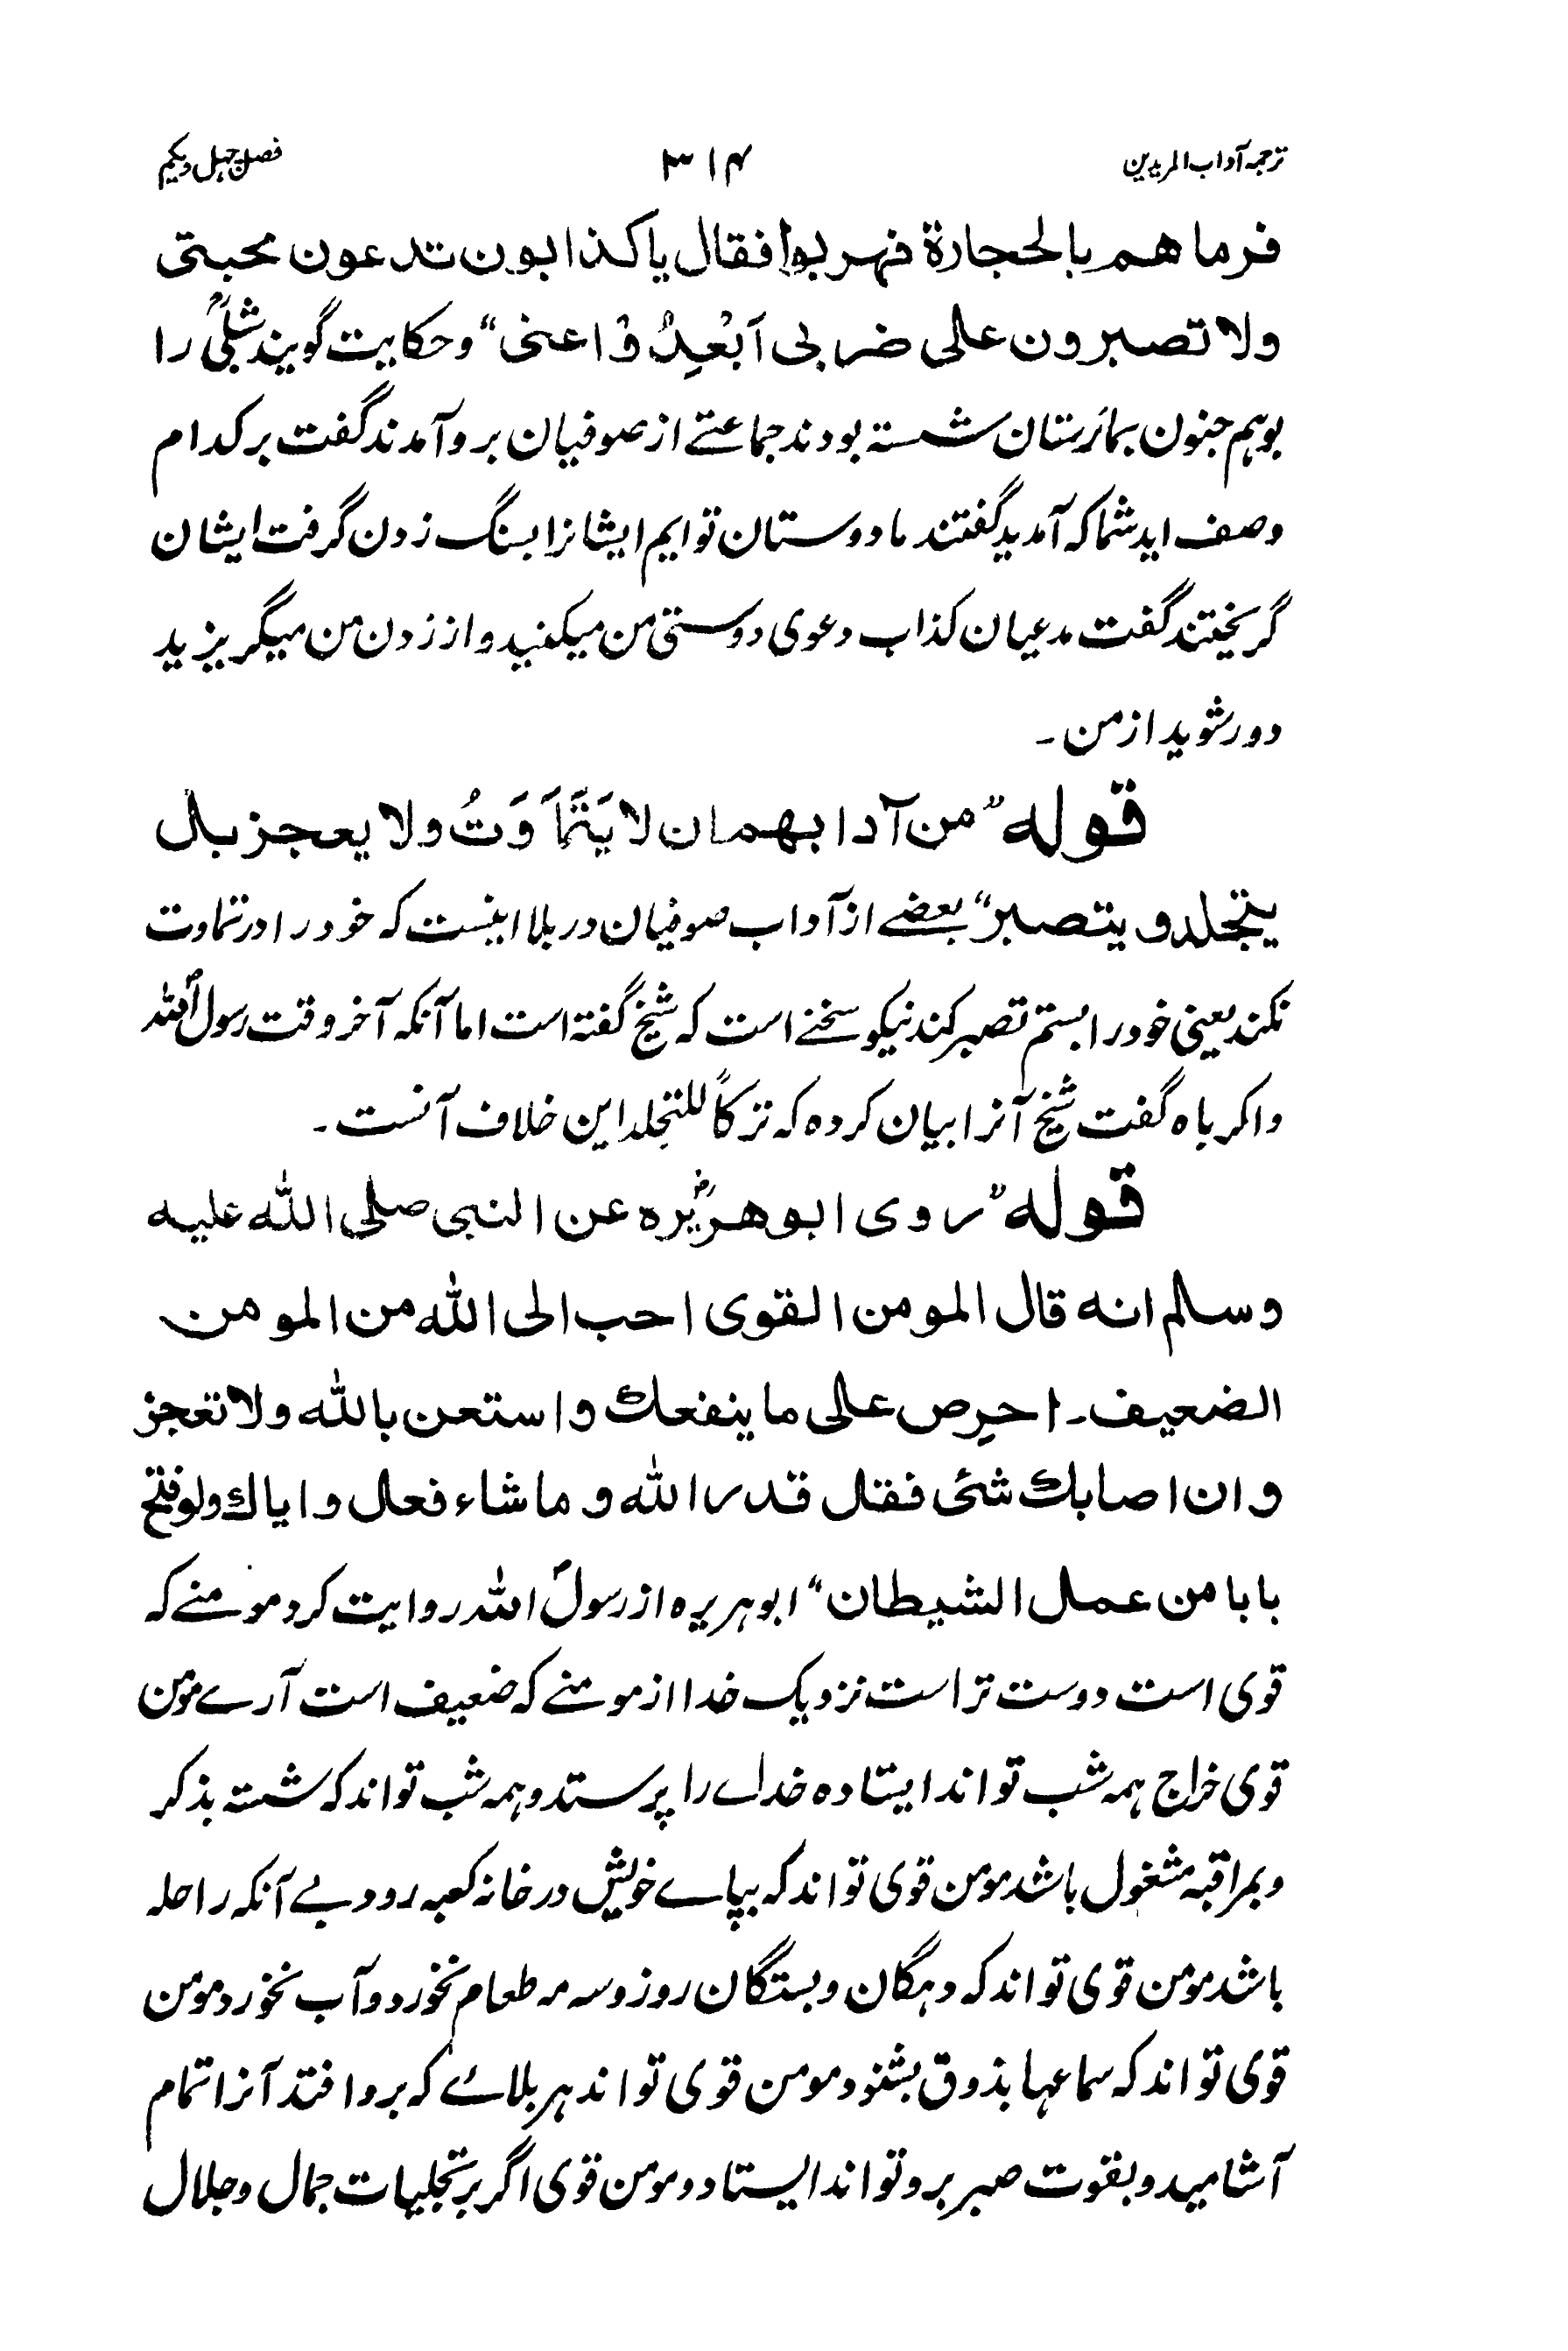 ترجمہ آداب المریدین ۳۱۴ فصل چہل ویکم
فرماهم بالحجارة فهربوا فقال يا كذابون تدعون محبتى
ولا تصبرون على ضربى اَبْعِدُوْا عنى“ و حکایت گویند شبلیؒ را
بوہم جنون بمارستان شستہ بودند جماعتے از صوفیان برو آمدند گفت برکدام
وصف اید شما کہ آمدید گفتند ما دوستان توایم ایشانرا بسنگ زدن گرفت ایشان
گریختند گفت مدعیان کذاب دعوی دوستی من میکنید و از زدن من میگریزید
دور شوید از من ۔
قوله ”من آدابهم ان لا يَتَمَاوَتُ ولا يعجز بل
يتجلد و يتصبر“ بعضے از آداب صوفیان در بلا اینست کہ خود را در تماوت
نکند یعنی خود را بستم تصبر کند نیکو سخنے است کہ شیخ گفتہ است اما آنکہ آخر وقت رسول اللہؐ
واکرباہ گفت شیخ آنرا بیان کردہ کہ ترکاً للتجلد این خلاف آنست ۔
قوله ”روى ابو هريرهؓ عن النبى صلى الله عليه
وسلم انه قال المومن القوى احب الى الله من المومن
الضعيف ۔ احرِص على ما ينفعك و استعن بالله ولا تعجز
و ان اصابك شئى فقل قدر الله و ما شاء فعل و اياك ولو فتح
بابا من عمل الشيطان“ ابوہریرہ از رسولؐ اللہ روایت کرد مومنے کہ
قوی است دوست تر است نزدیک خدا از مومنے کہ ضعیف است آرے مومن
قوی خراج ہمہ شب تواند ایستادہ خداے را پرستد وہمہ شب تواند کہ شستہ بذکر
و بمراقبہ مشغول باشد مومن قوی تواند کہ بپاے خویش در خانہ کعبہ رود بے آنکہ راحلہ
باشد مومن قوی تواند کہ دہگان و بستگان روز و سہ مہ طعام نخورد و آب نخورد مومن
قوی تواند کہ سماعہا بذوق بشنود مومن قوی تواند ہر بلاے کہ برو افتد آنرا تمام
آشامید و بقوت صبر برو تواند ایستاد و مومن قوی اگر بر تجلیات جمال و جلال